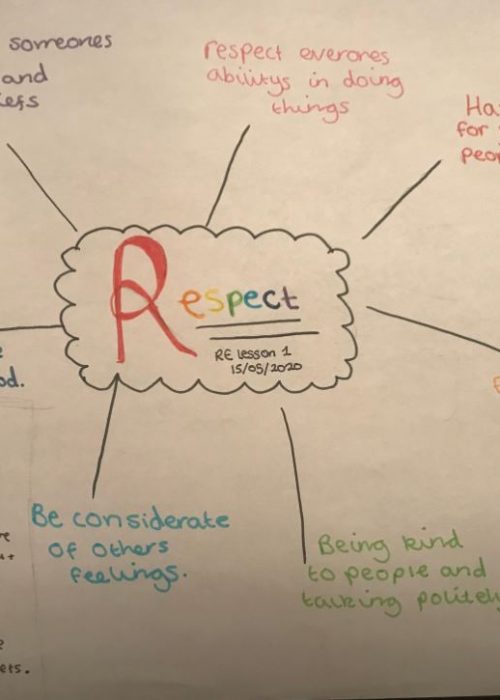 someones
and
respect everones
abilitys in doing
things
for
Respect
RE lesson 1
15/05/2020
Be considerate
of others
feelings.
Being kind
to people and
talking politely